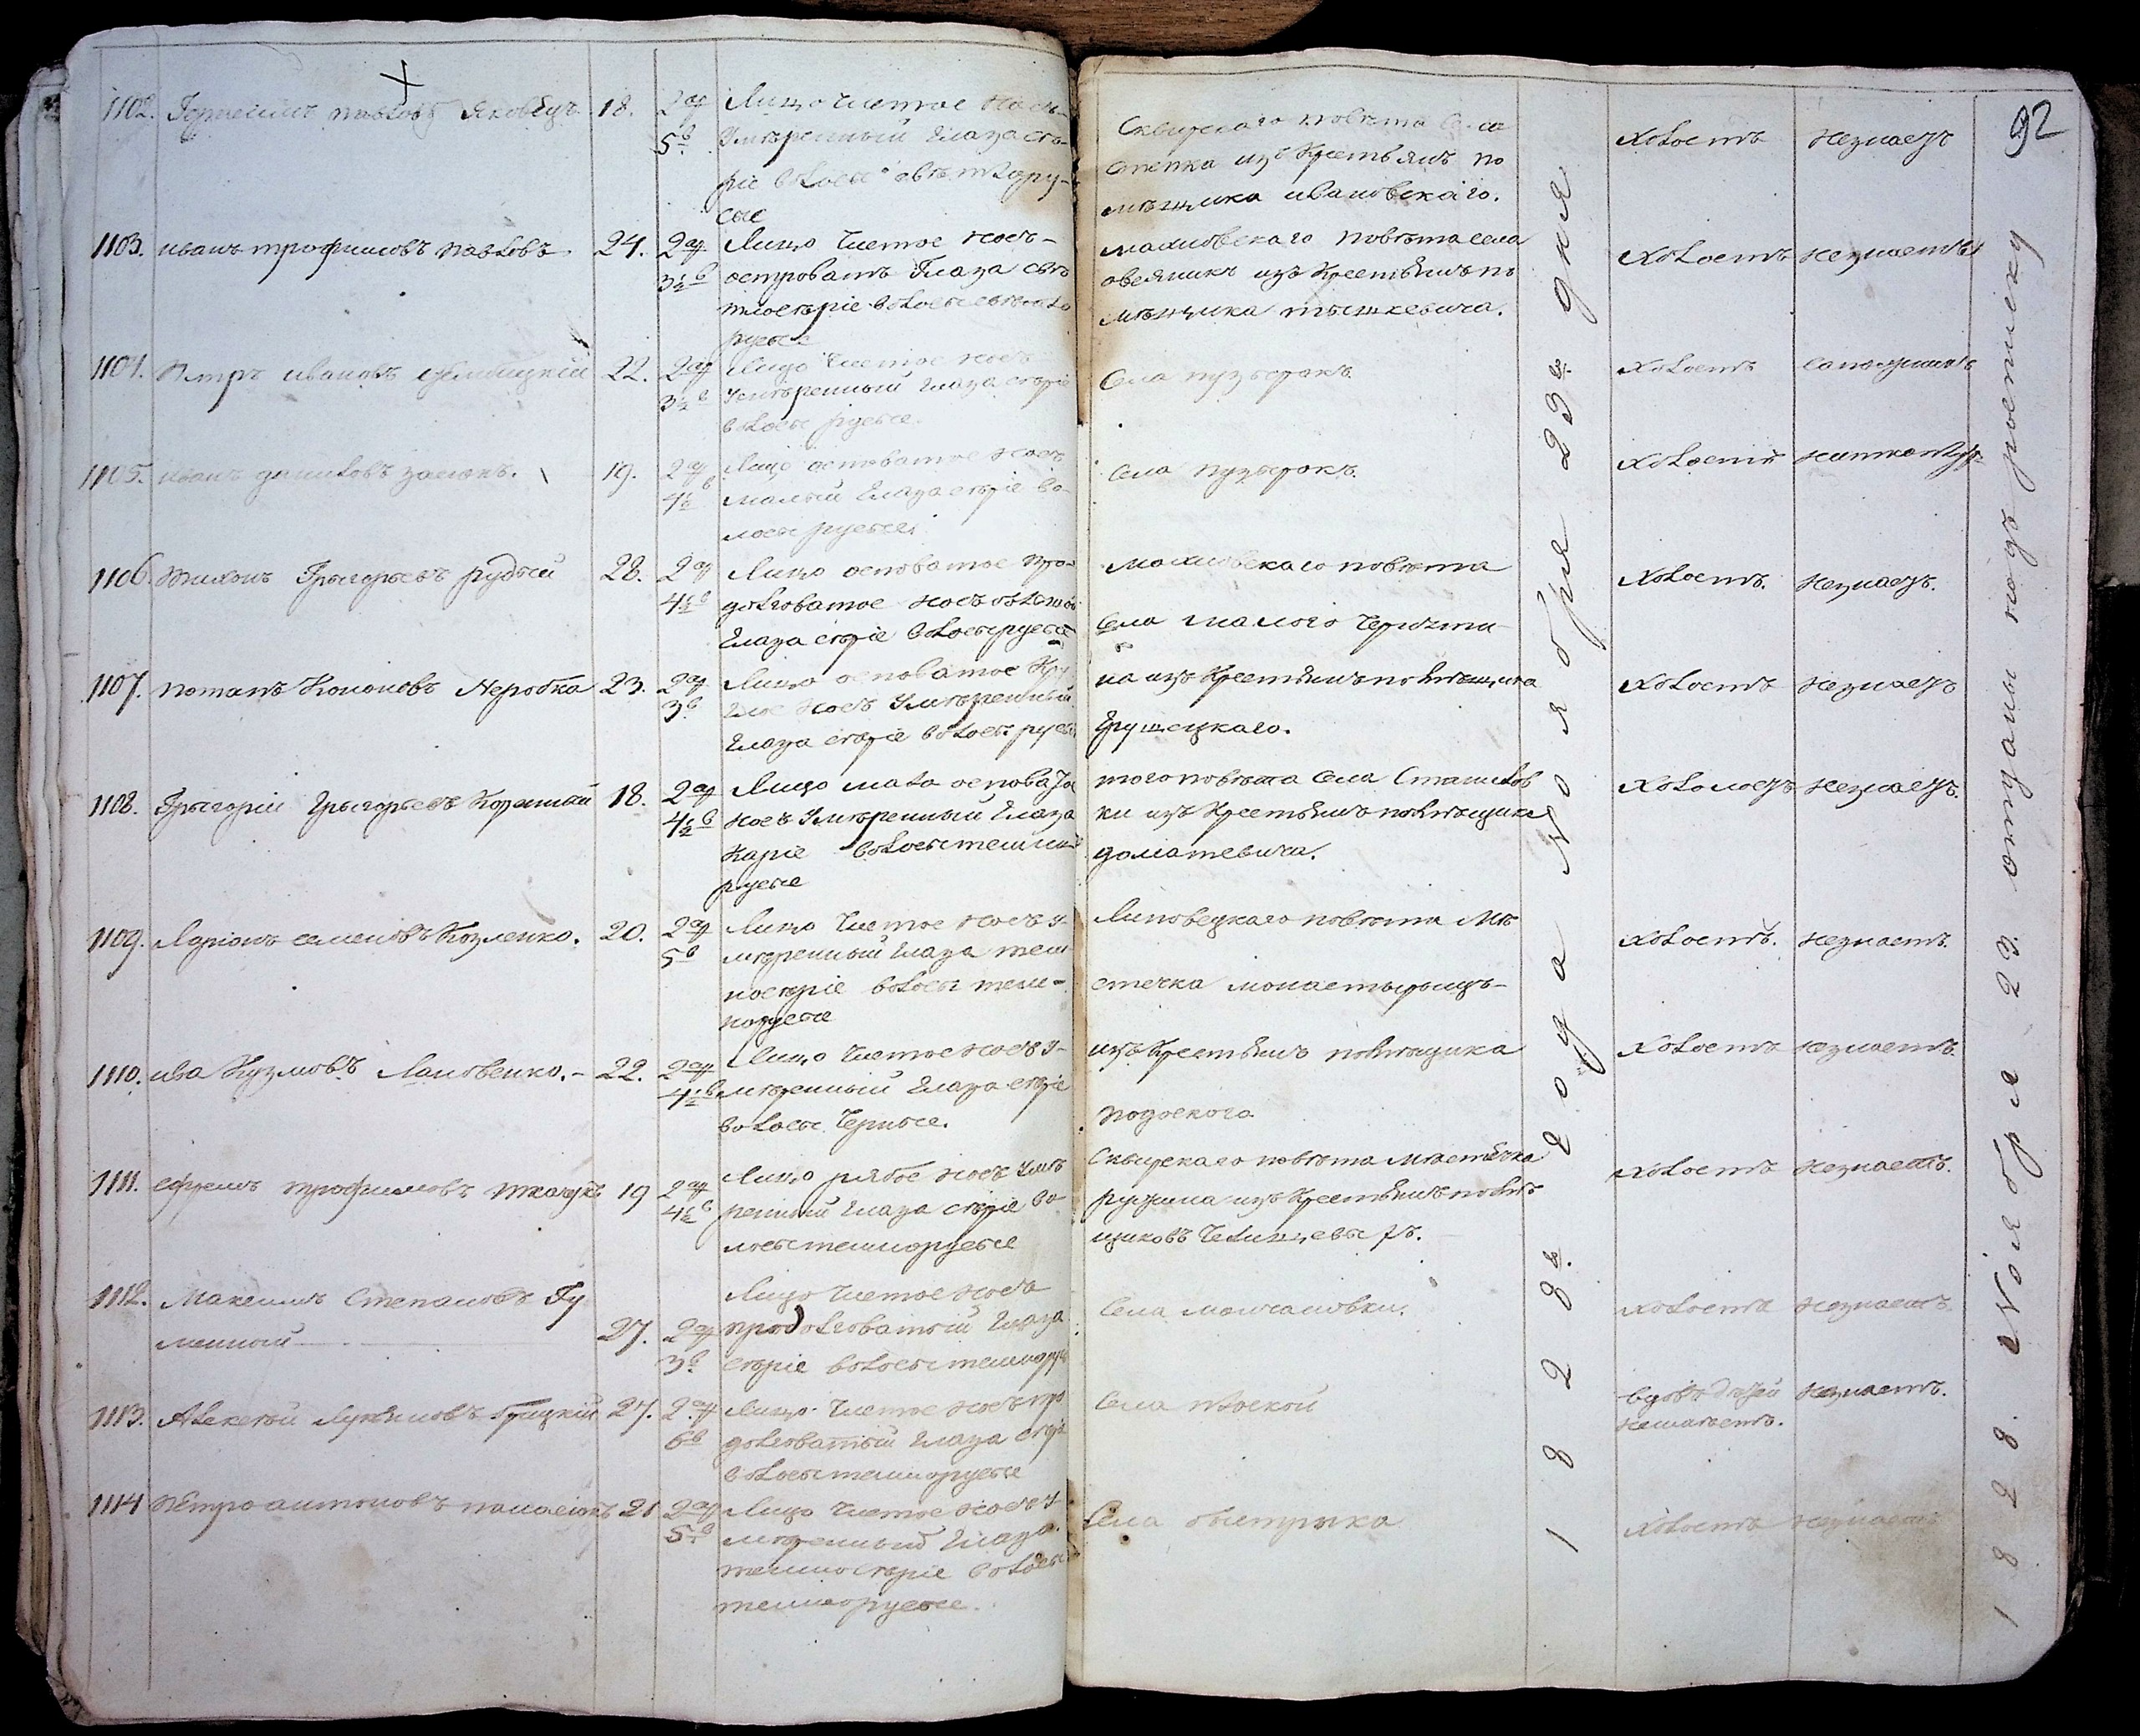 92
1102. Герасимъ павловъ Яковецъ 18. 2 ар 5 в
Лицо чистое носъ
Умѣренный глаза сѣ-
рiе волосы свѣтлору-
сые
Сквирскаго повѣта Села
степка изъ Крестьянъ по
мѣщика ивановскаго.
Холостъ незнаетъ
1103. иванъ трофимовъ павловъ 24. 2 ар 3½ в
Лицо чистое носъ-
островатъ Глаза свѣ
тлосѣрiе волосы свѣтло
русые
махновскаго повѣта села
изъ Крестьянъ по
мѣщика тышкевича.
Холостъ незнаетъ
1104. Петръ ивановъ 22. 2 ар 3½ в
Лицо чистое носъ
Умѣренный глаза сѣрiе
волосы русые.
Села пузырокъ.
Холостъ сапожникъ
1105. иванъ даниловъ 19. 2 ар 4½ в
Лицо осповатое носъ
малый глаза сѣрiе во-
лосы русые.
Села пузырокъ.
Холостъ
1106. Тихонъ Грыгорьевъ рудый 28. 2 ар 4½ в
Лицо осповатое про-
долговатое носъ
глаза сѣрiе волосы русые
Махновскаго повѣта
Села малого Черняти
Холостъ. незнаетъ.
1107. потапъ Кононовъ Неробка 23. 2 ар 3 в
Лицо осповатое Кру
глое носъ Умѣренный
глаза сѣрiе волосы русы
на изъ Крестьянъ помѣщика
Грушецкаго.
Холостъ незнаетъ
1108. Грыгорiй Грыгорьевъ 18. 2 ар 4½ в
Лицо мало осповатое
носъ Умѣренный Глаза
Карiе волосы темно
русые
того повѣта Села Станилов
ки изъ Крестьянъ помѣщика
доматевича.
Холостъ незнаетъ.
1109. Ларiонъ семеновъ Козленко. 20. 2 ар 5 в
Лицо чистое носъ у-
мѣренный глаза тем
носѣрiе волосы тем-
норусые
Липовецкаго повѣта Мѣ
стечка монастырищъ-
Холостъ. незнаетъ.
1110. ива Кузмовъ Лановенко. - 22. 2 ар 4½ в
Лицо чистое носъ у-
мѣренный глаза сѣрiе
волосы Черные.
изъ Крестьянъ помѣщика
подоского
Холостъ незнаетъ.
1111. ефремъ трофимовъ ткачукъ 19 2 ар 4½ в
Лицо рябое носъ умѣ
ренный глаза сѣрiе во-
лосы темнорусые
Сквирскаго повѣта мѣстечка
ружина изъ Крестьянъ помѣ
щиковъ Челищевыхъ.
Холостъ незнаетъ.
1112. Максимъ Степановъ Гу
менный 27. 2 ар 3 в
Лицо чистое носъ
продолговатый глаза
сѣрiе волосы темнорус
Села молчановки.
Холостъ незнаетъ.
1113. Алексѣй Лукьяновъ Грицкiй 27. 2 ар 6 в
Лицо чистое носъ про
долговатый глаза сѣрiе
волосы темнорусые
Села плоской
вдовъ дѣтей
неимѣетъ. незнаетъ.
1114 Петро антоновъ панасюкъ 21 2 ар 5 в
Лицо чистое носъ у-
мѣренный глаза
темносѣрiе волосы
темнорусые.
Села быстрыка
Холостъ незнаетъ
1828го года Ноября 23го дня
1828. Ноября 23. отданы подъ росписку